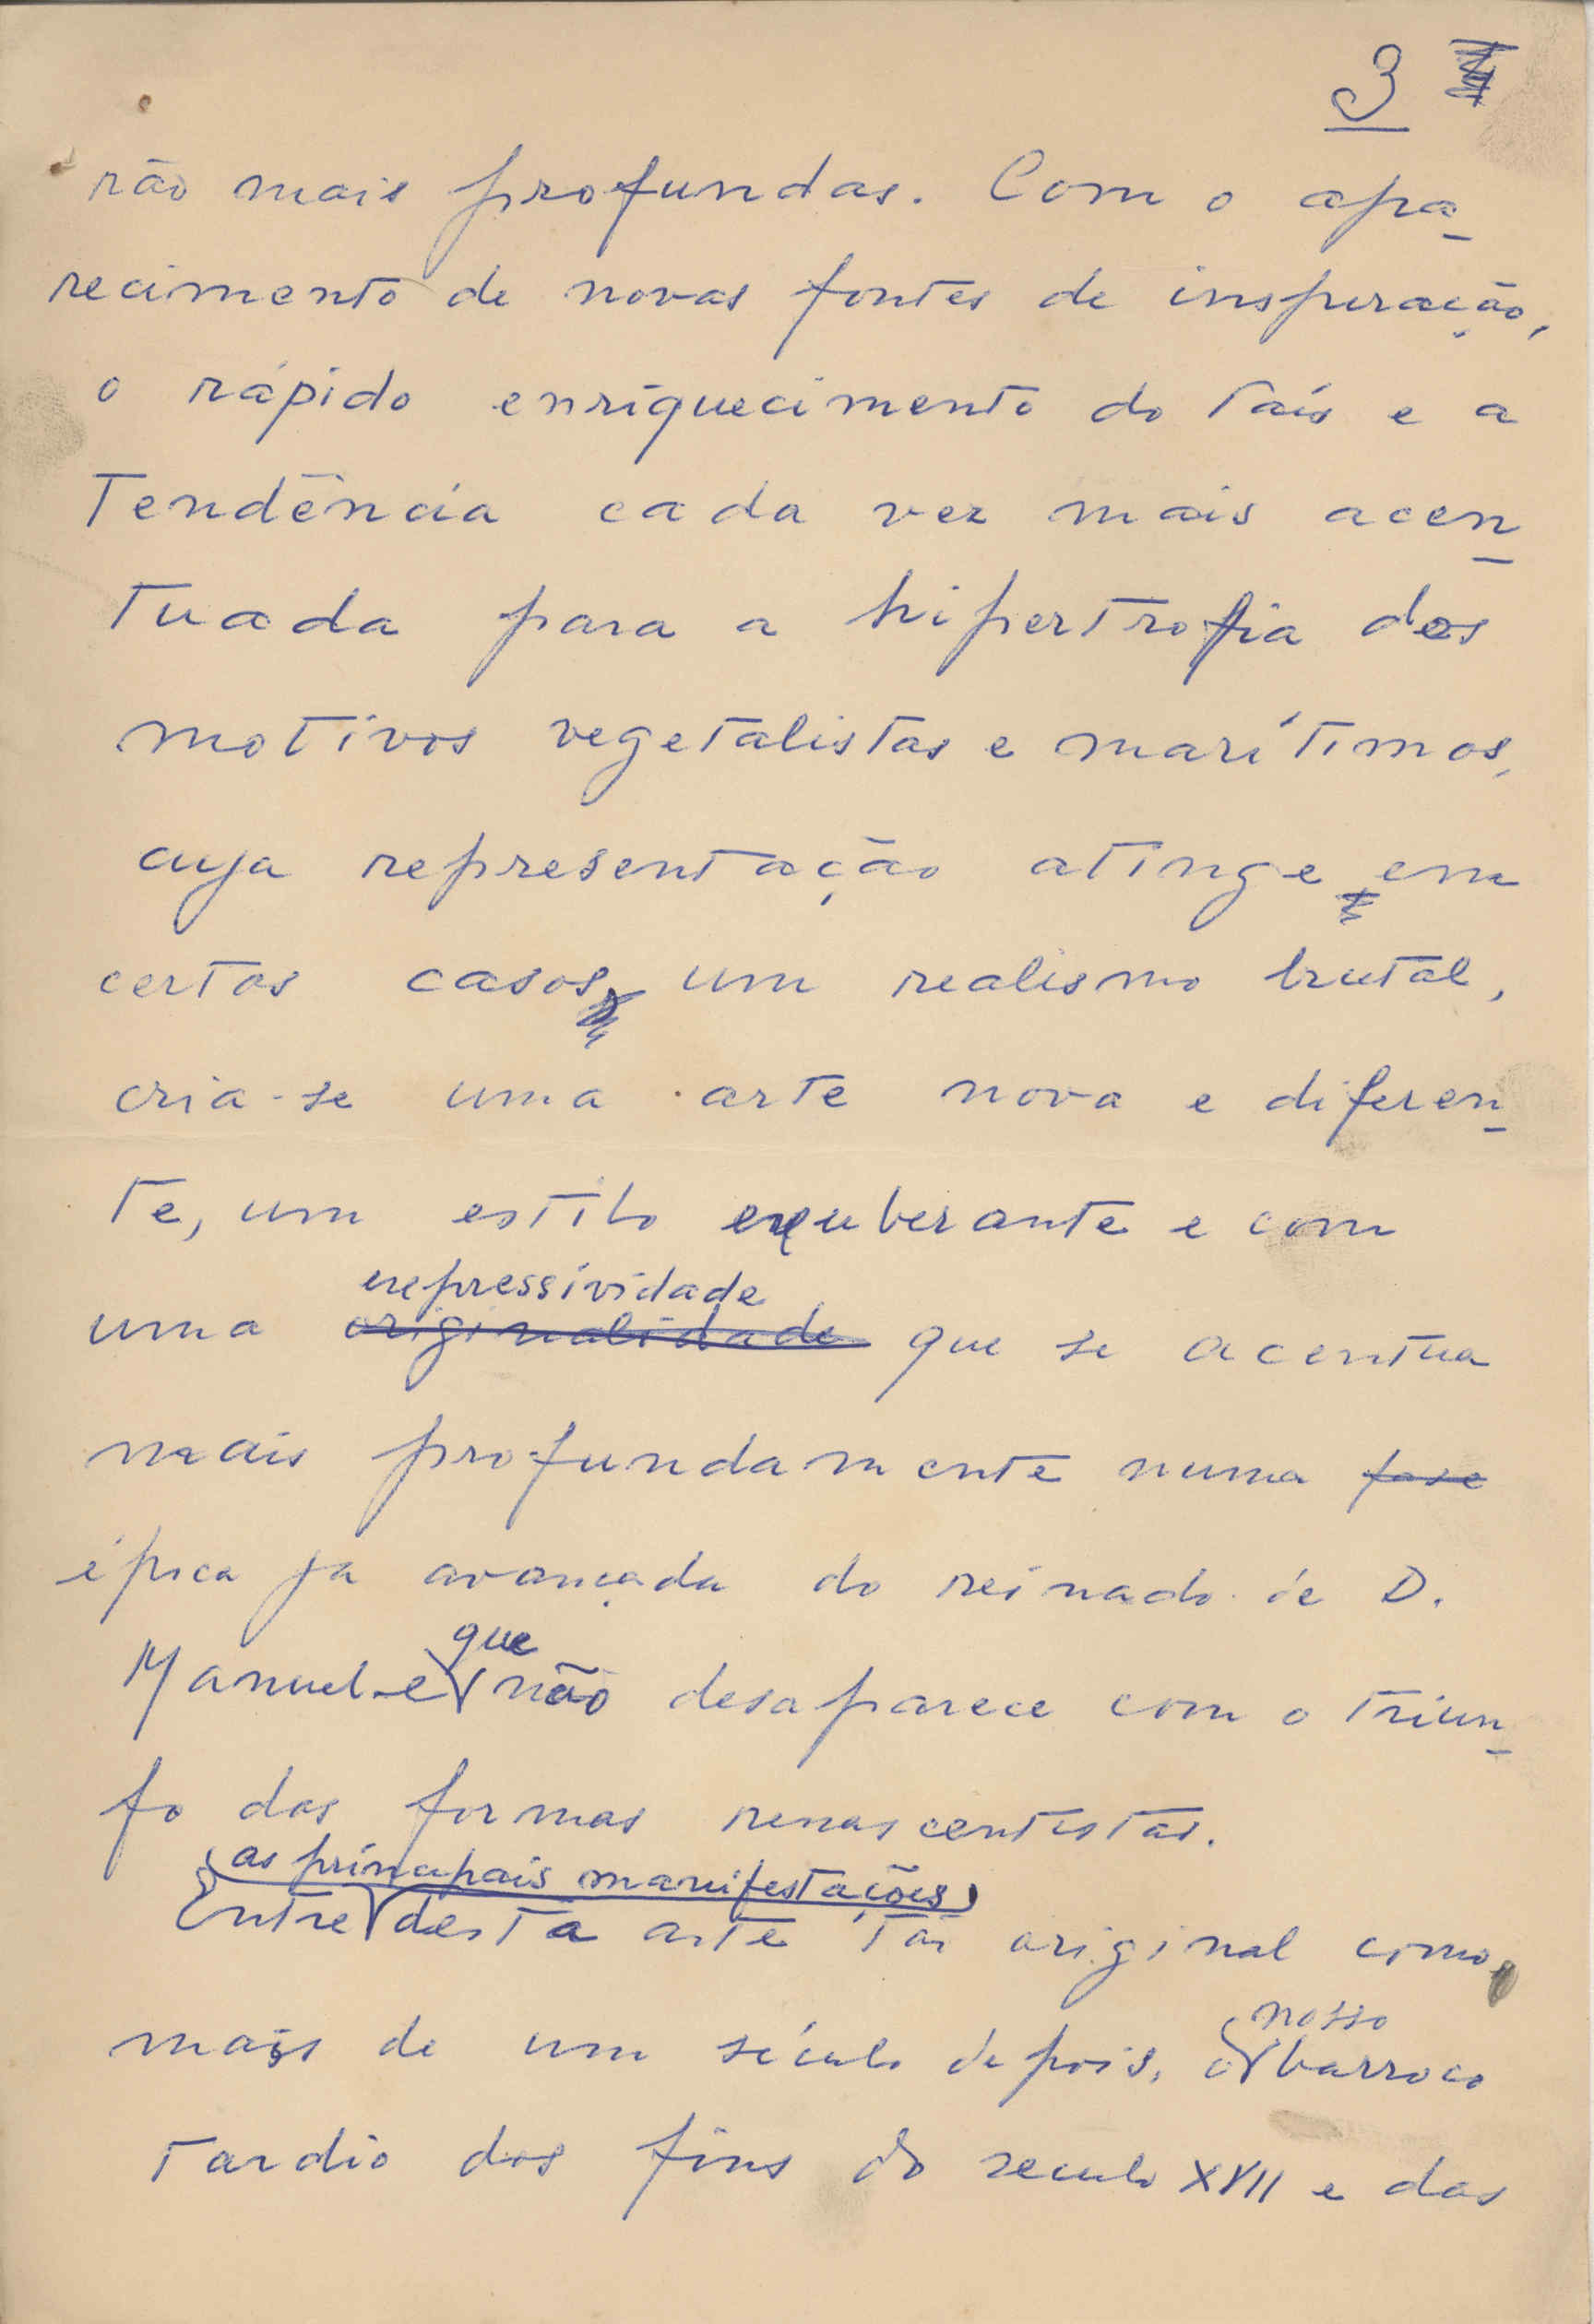 3
rão mais profundas. Com o apa-
recimento de novas fontes de inspiração,
o rápido enriquecimento do País e a
Tendência cada vez mais acen-
tuada para a hipertrofia dos
motivos vegetalistas e marítimos,
cuja representação atinge em
certos casos um realismo brutal,
cria-se uma arte nova e diferen-
te, um estilo exuberante e com
expressividade
uma originalidade que se acentua
mais profundamente numa fase
época já avançada do reinado de D.
que
Manuel e não desaparece com o triun-
fo das formas renascentistas.
as principais manifestações
Entre desta arte tão original como
nosso
mais de um século depois, o barroco
tardio dos fins do seculo XVII e das